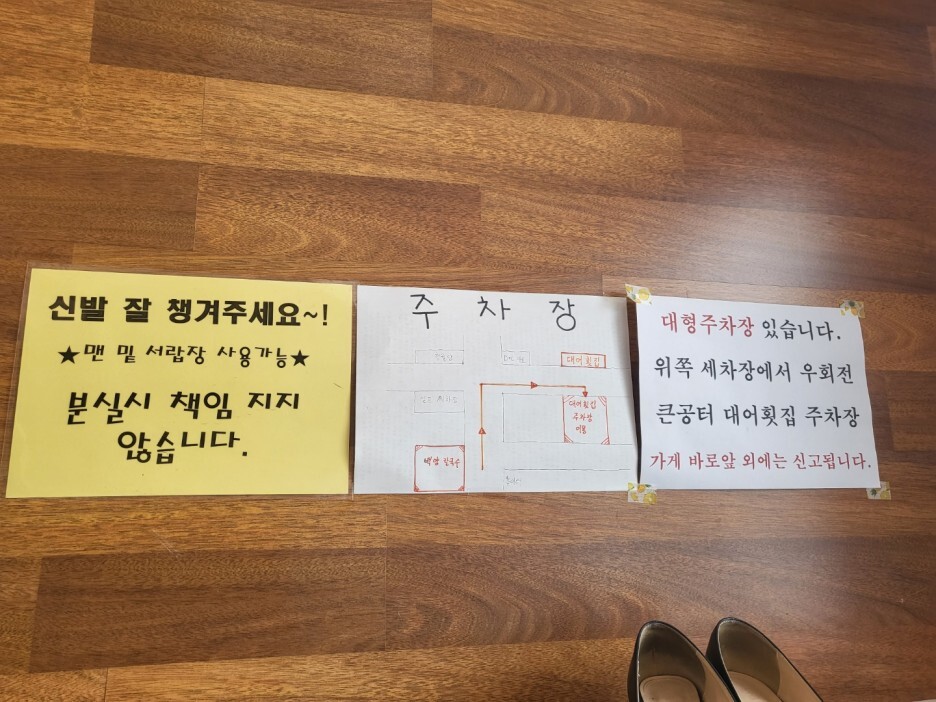 신발 잘 챙겨주세요~!
★맨 밑 서랍장 사용가능★
분실시 책임 지지
않습니다.
주 차 장
대어횟집
대어횟집
주차장
이용
대형주차장 있습니다.
위쪽 세차장에서 우회전
큰공터 대어횟집 주차장
가게 바로앞 외에는 신고됩니다.